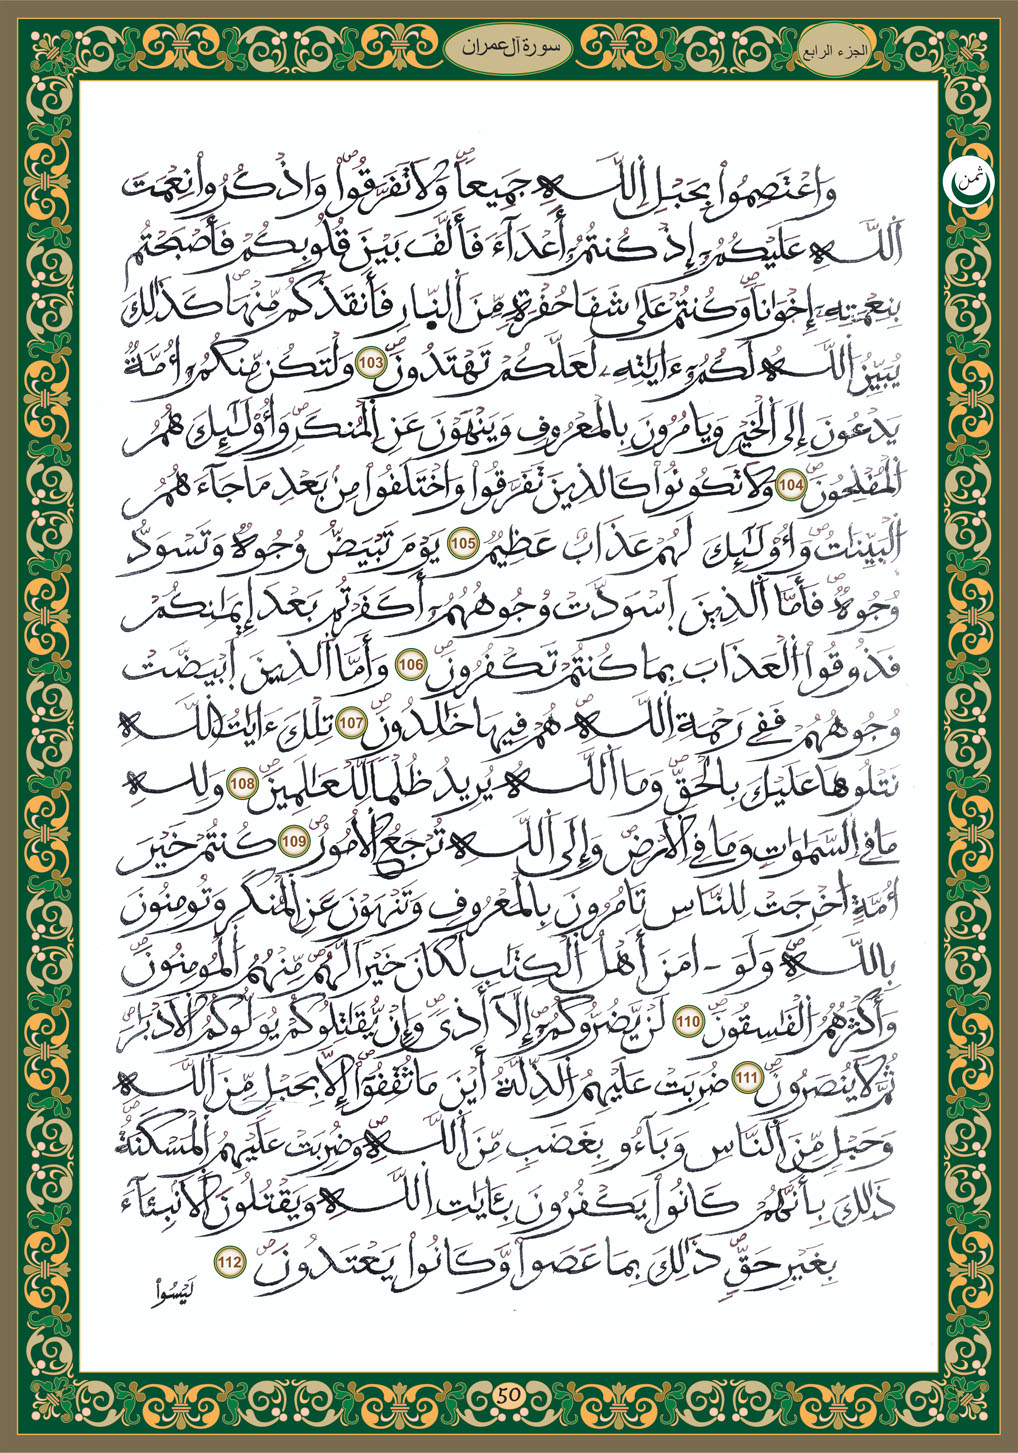 الجزء الرابع
سورة آل عمران
ثمن
وَاعْتَصِمُواْ بِحَبْلِ اِ۬للَّهِ جَمِيعاٗ وَلَا تَفَرَّقُواْ وَاذْكُرُواْ نِعْمَتَ
اَ۬للَّهِ عَلَيْكُمُۥٓ إِذْ كُنتُمُۥٓ أَعْدَآءٗ فَأَلَّفَ بَيْنَ قُلُوبِكُمْ فَأَصْبَحْتُم
بِنِعْمَتِهِۦٓ إِخْوَٰناٗ وَكُنتُمْ عَلَىٰ شَفَا حُفْرَةٖ مِّنَ اَ۬لنّ۪ارِ فَأَنقَذَكُم مِّنْهَا كَذَٰلِكَ
يُبَيِّنُ اُ۬للَّهُ لَكُمُۥٓ ءَايَٰتِهِۦ لَعَلَّكُمْ تَهْتَدُونَ 103 وَلْتَكُن مِّنكُمُۥٓ أُمَّةٞ
يَدْعُونَ إِلَى اَ۬لْخَيْرِ وَيَامُرُونَ بِالْمَعْرُوفِ وَيَنْهَوْنَ عَنِ اِ۬لْمُنكَرِ وَأُوْلَٰٓئِكَ هُمُ
اُ۬لْمُفْلِحُونَ 104 وَلَا تَكُونُواْ كَالذِينَ تَفَرَّقُواْ وَاخْتَلَفُواْ مِنۢ بَعْدِ مَا جَآءَهُمُ
اُ۬لْبَيِّنَٰتُ وَأُوْلَٰٓئِكَ لَهُمْ عَذَابٌ عَظِيمٞ 105 يَوْمَ تَبْيَضُّ وُجُوهٞ وَتَسْوَدُّ
وُجُوهٞ فَأَمَّا اَ۬لذِينَ اَ۪سْوَدَّتْ وُجُوهُهُمُۥٓ أَكَفَرْتُم بَعْدَ إِيمَٰنِكُمْ
فَذُوقُواْ اُ۬لْعَذَابَ بِمَا كُنتُمْ تَكْفُرُونَ 106 وَأَمَّا اَ۬لذِينَ اَ۪بْيَضَّتْ
وُجُوهُهُمْ فَفِے رَحْمَةِ اِ۬للَّهِ هُمْ فِيهَا خَٰلِدُونَ 107 تِلْكَ ءَايَٰتُ اُ۬للَّهِ
نَتْلُوهَا عَلَيْكَ بِالْحَقِّ وَمَا اَ۬للَّهُ يُرِيدُ ظُلْماٗ لِّلْعَٰلَمِينَ 108 وَلِلهِ
مَا فِے اِ۬لسَّمَٰوَٰتِ وَمَا فِے اِ۬لَارْضِ وَإِلَى اَ۬للَّهِ تُرْجَعُ اُ۬لُامُورُ 109 كُنتُمْ خَيْرَ
أُمَّةٍ اُخْرِجَتْ لِلنَّاسِ تَامُرُونَ بِالْمَعْرُوفِ وَتَنْهَوْنَ عَنِ اِ۬لْمُنكَرِ وَتُومِنُونَ
بِاللَّهِ وَلَوَ ـ امَنَ أَهْلُ اُ۬لْكِتَٰبِ لَكَانَ خَيْراٗ لَّهُم مِّنْهُمُ اُ۬لْمُومِنُونَ
وَأَكْثَرُهُمُ اُ۬لْفَٰسِقُونَ 110 لَنْ يَّضُرُّوكُمُۥٓ إِلَّآ أَذىٗ وَإِنْ يُّقَٰتِلُوكُمْ يُوَلُّوكُمُ اُ۬لَادْبَٰرَ
ثُمَّ لَا يُنصَرُونَ 111 ضُرِبَتْ عَلَيْهِمُ اُ۬لذِّلَّةُ أَيْنَ مَا ثُقِفُوٓاْ إِلَّا بِحَبْلٖ مِّنَ اَ۬للَّهِ
وَحَبْلٖ مِّنَ اَ۬لنَّاسِ وَبَآءُو بِغَضَبٖ مِّنَ اَ۬للَّهِ وَضُرِبَتْ عَلَيْهِمُ اُ۬لْمَسْكَنَةُ
ذَٰلِكَ بِأَنَّهُمْ كَانُواْ يَكْفُرُونَ بِـَٔايَٰتِ اِ۬للَّهِ وَيَقْتُلُونَ اَ۬لَانۢبِئَآءَ
بِغَيْرِ حَقّٖ ذَٰلِكَ بِمَا عَصَواْ وَّكَانُواْ يَعْتَدُونَ 112
لَيْسُواْ
50